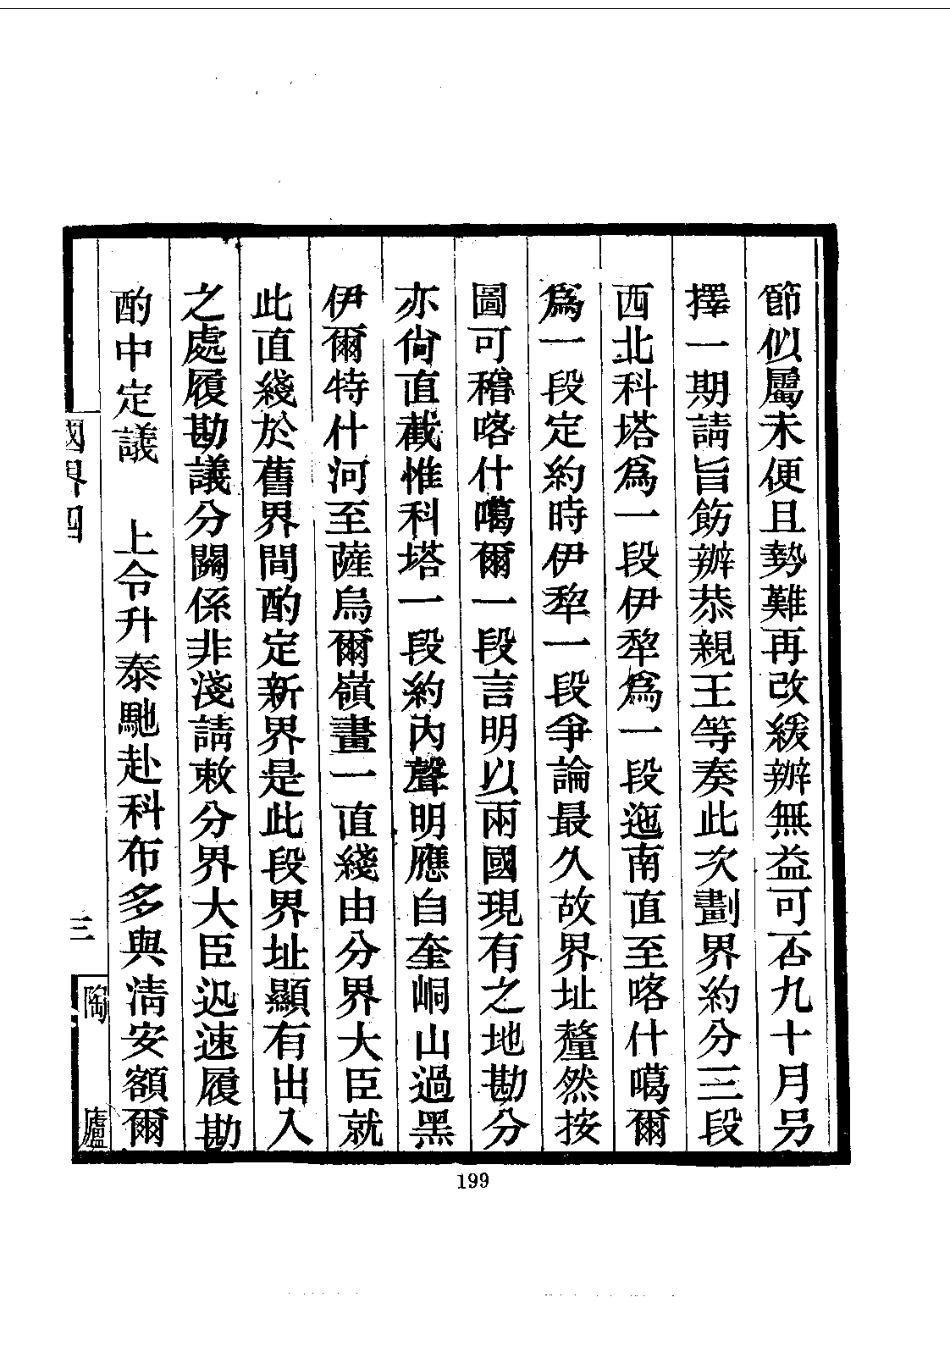 節似屬未便且勢難再改緩辦無益可否九十月另
擇一期請旨飭辦恭親王等奏此次劃界約分三段
西北科塔爲一段伊犂爲一段迤南直至喀什噶爾
爲一段定約時伊犂一段爭論最久故界址釐然按
圖可稽喀什噶爾一段言明以兩國現有之地勘分
亦尙直截惟科塔一段約內聲明應自奎峒山過黑
伊爾特什河至薩烏爾嶺畫一直綫由分界大臣就
此直綫於舊界間酌定新界是此段界址顯有出入
之處履勘議分關係非淺請敕分界大臣迅速履勘
酌中定議　上令升泰馳赴科布多與淸安額爾
國界四
三
陶廬
199